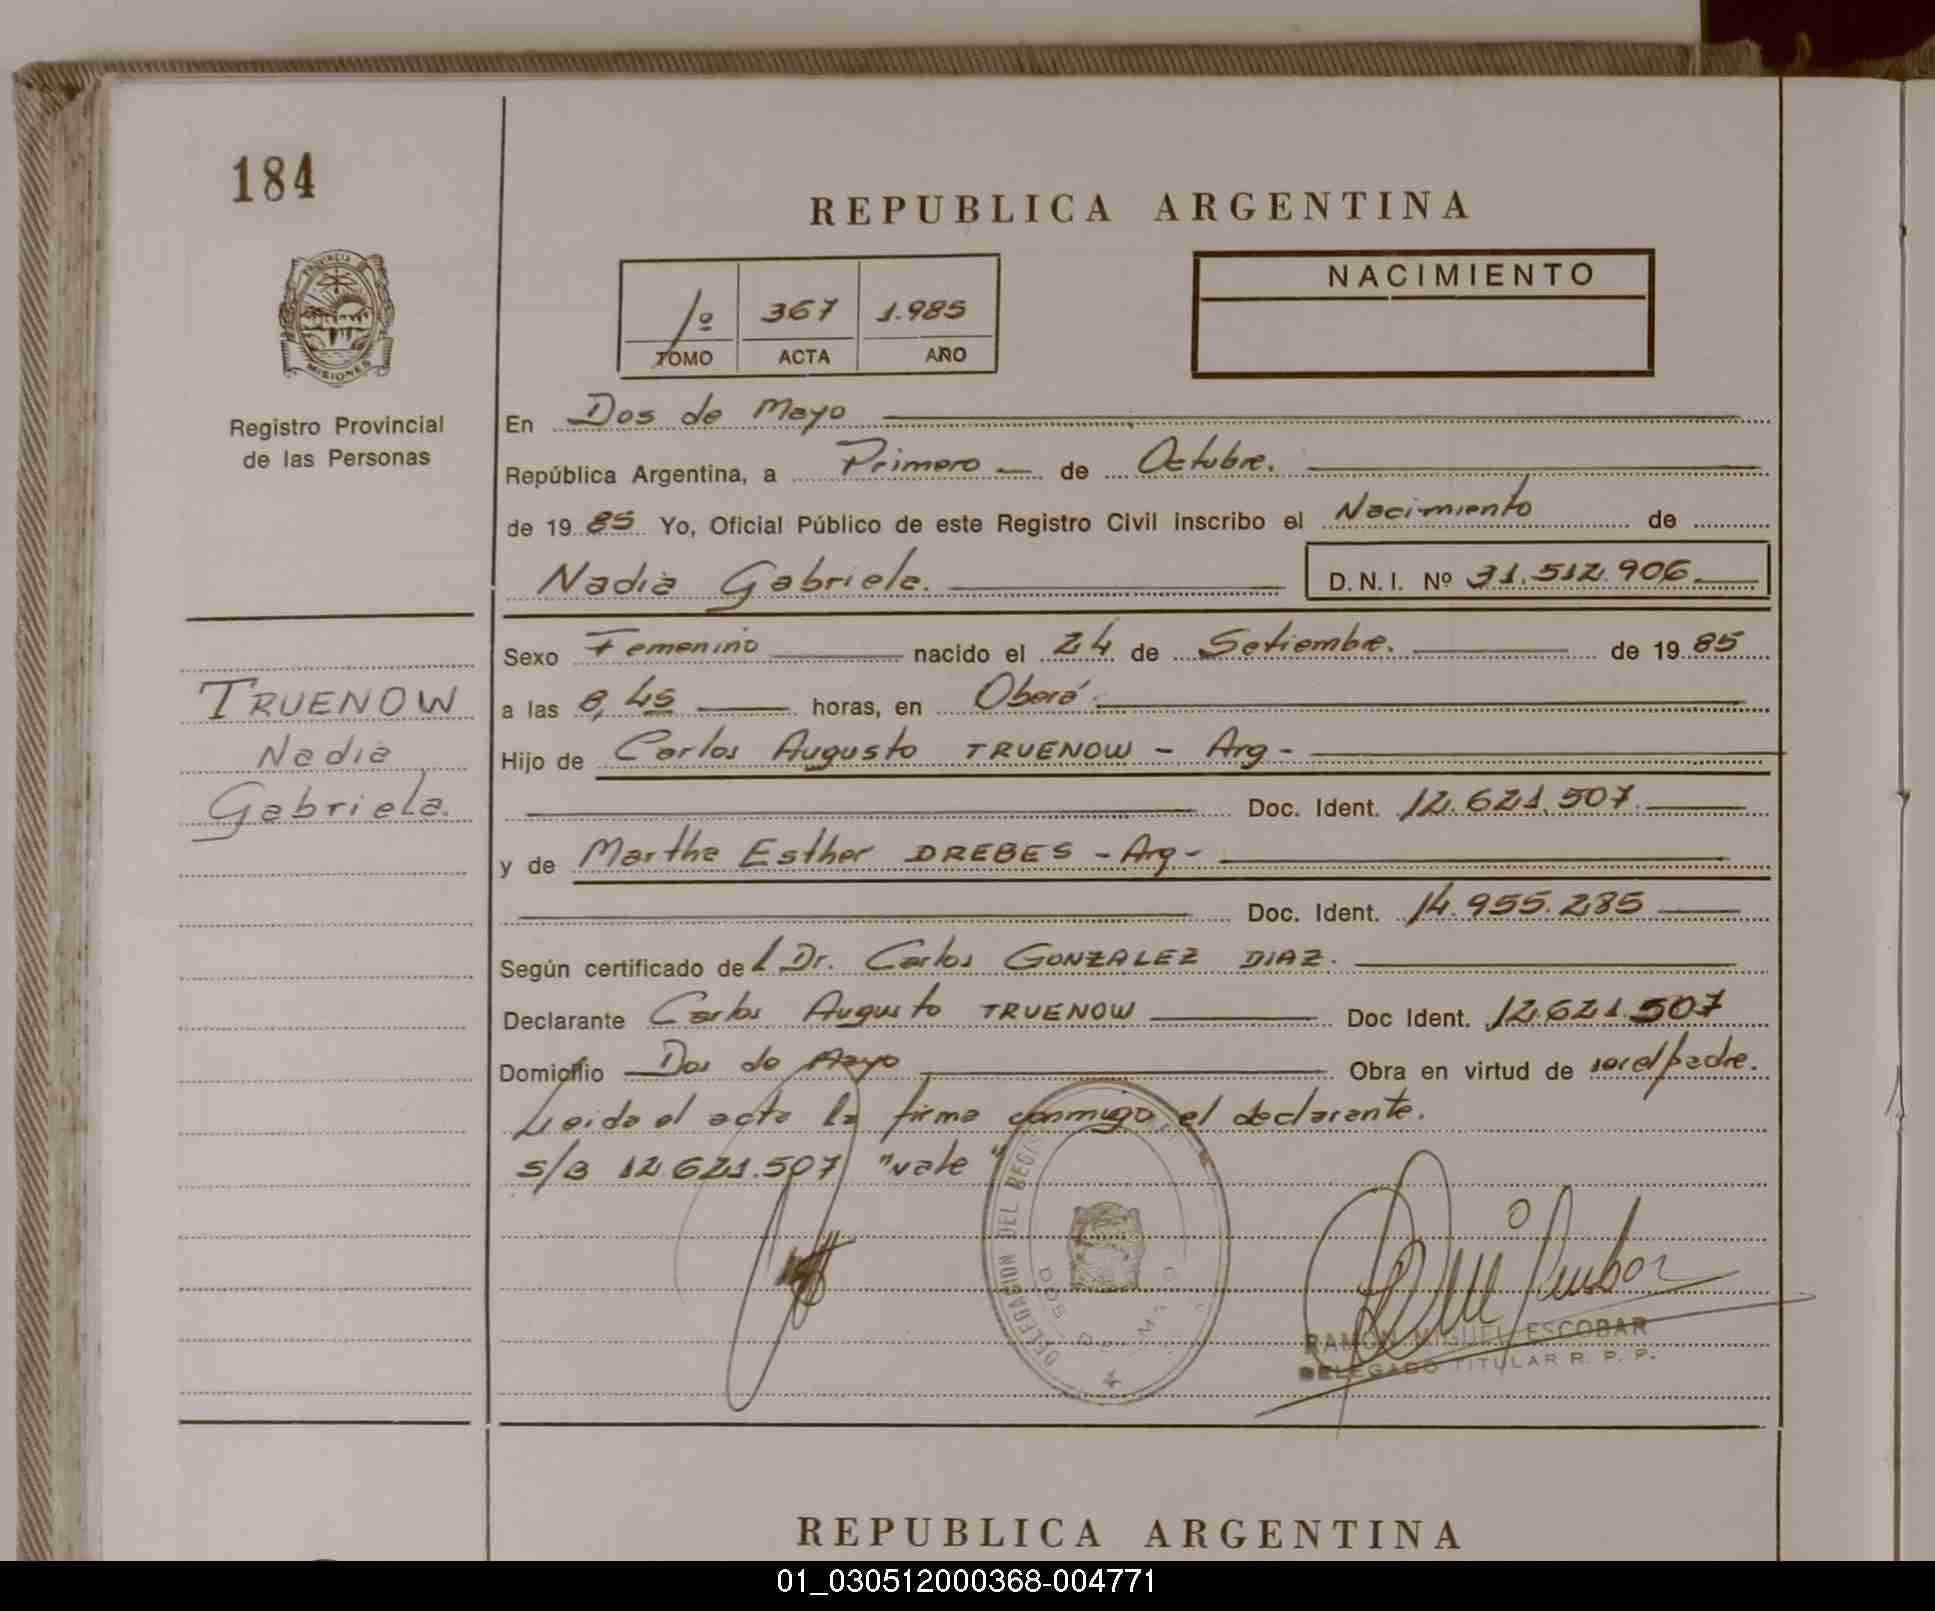 184
PROVINCIA
MISIONES
Registro Provincial
de las Personas
REPUBLICA ARGENTINA
1º 367 1.985
TOMO ACTA AÑO
NACIMIENTO
En Dos de Mayo
República Argentina, a Primero de Octubre.
de 19 85 Yo, Oficial Público de este Registro Civil inscribo el Nacimiento de
Nadia Gabriela. D.N.I. Nº 31.512.906
Sexo Femenino nacido el 24 de Setiembre. de 19 85
a las 8,45 horas, en Oberá
Hijo de Carlos Augusto TRUENOW - Arg -
Doc. Ident. 12.621.507
y de Martha Esther DREBES - Arg -
Doc. Ident. 14.955.285
Según certificado del Dr. Carlos GONZALEZ DIAZ.
Declarante Carlos Augusto TRUENOW Doc Ident. 12.621.507
Domicilio Dos de Mayo Obra en virtud de ser el padre.
Leida el acta la firma conmigo, el declarante.
s/B 12.621.507 "vale"
TRUENOW
Nadia
Gabriela.
DELEGACION DEL REGIS
DOS DE MAYO
RAMON MIGUEL ESCOBAR
DELEGADO TITULAR R. P. P.
REPUBLICA ARGENTINA
01_030512000368-004771